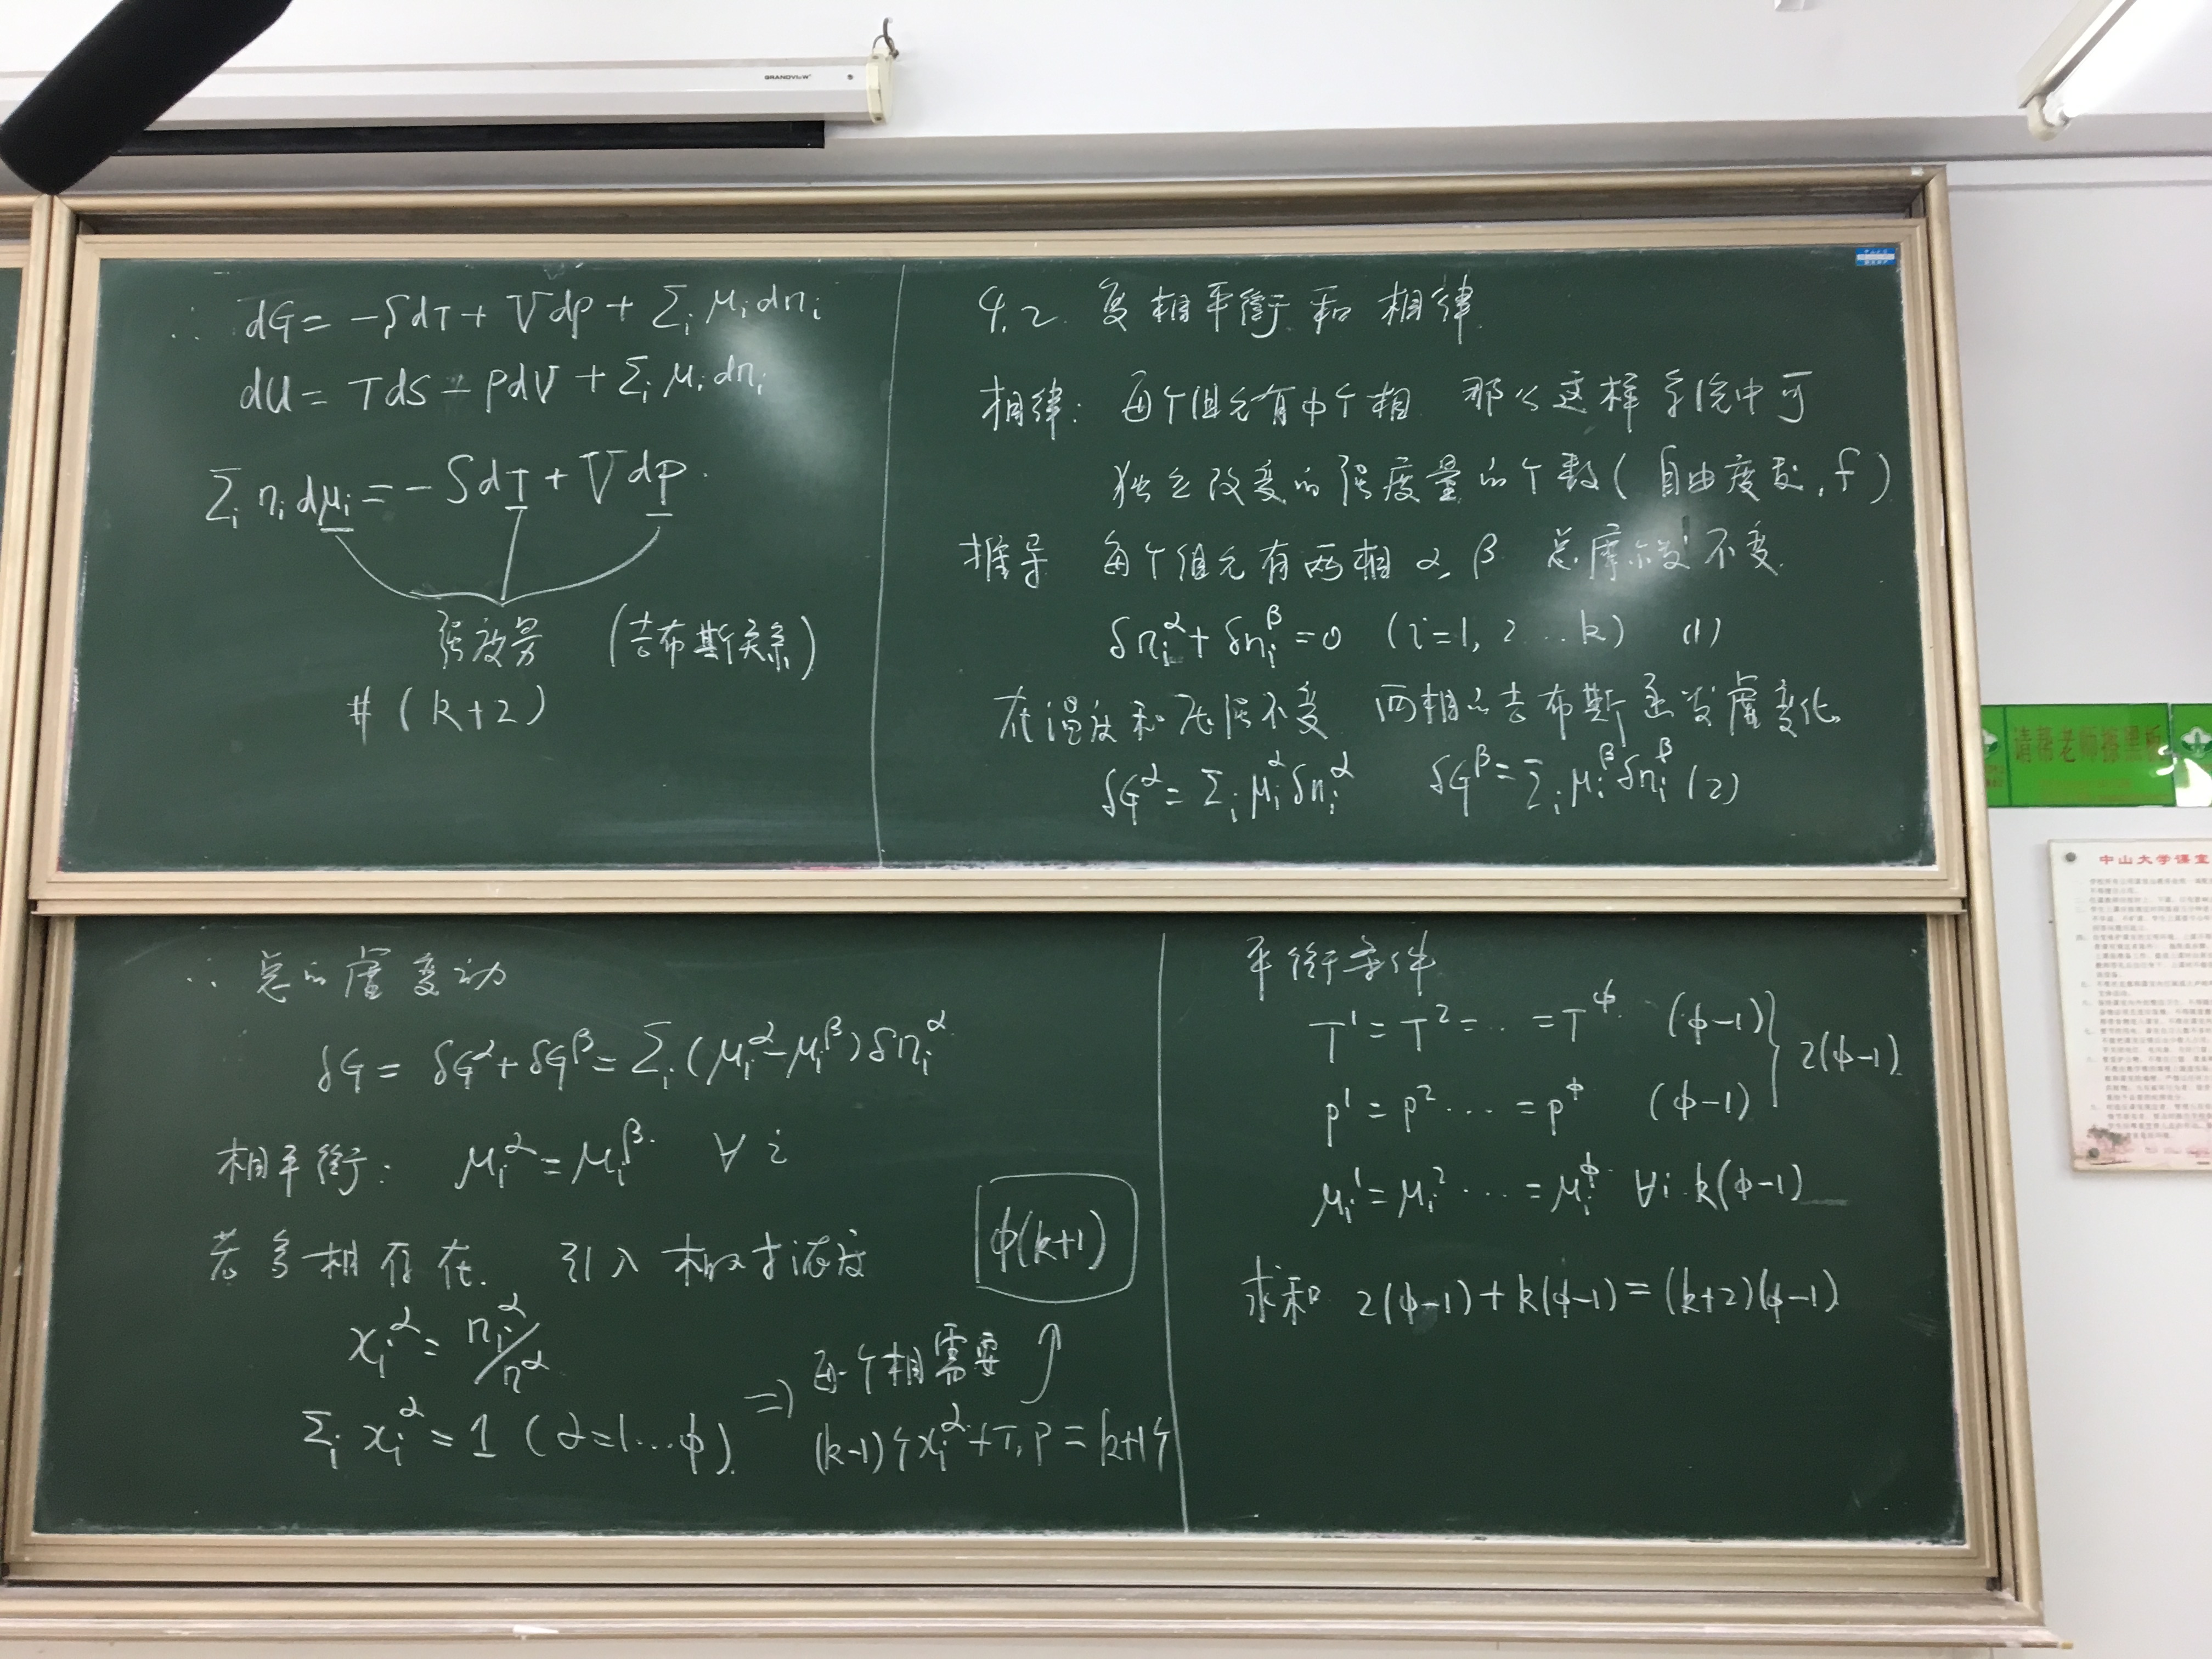 GRANDVIEW
∴ dG = -SdT + Vdp + Σᵢ μᵢdnᵢ
dU = TdS - pdV + Σᵢ μᵢdnᵢ
Σᵢ nᵢ dμᵢ = -SdT + Vdp.
强度量 (吉布斯关系)
# (k+2)
4.2 复相平衡和相律
相律: 每个组元有φ个相 那么这样系统中可
独立改变的强度量的个数(自由度数, f)
推导 每个组元有两相 α, β 总摩尔数不变
δnᵢ^α + δnᵢ^β = 0 (i=1, 2 ... k) (1)
在温度和压强不变 两相的吉布斯函数虚变化
δG^α = Σᵢ μᵢ^α δnᵢ^α δG^β = Σᵢ μᵢ^β δnᵢ^β (2)
∴ 总的虚变动
δG = δG^α + δG^β = Σᵢ (μᵢ^α - μᵢ^β) δnᵢ^α
相平衡: μᵢ^α = μᵢ^β ∀ i
若多相存在. 引入相对浓度
φ(k+1)
xᵢ^α = nᵢ^α / n^α
Σᵢ xᵢ^α = 1 (α=1...φ)
⇒ 每个相需要
(k-1)个xᵢ^α + T, P = k+1个
平衡条件
T¹ = T² = ... = T^φ (φ-1)
p¹ = p² ... = p^φ (φ-1)
2(φ-1)
μᵢ¹ = μᵢ² ... = μᵢ^φ ∀i k(φ-1)
求和 2(φ-1) + k(φ-1) = (k+2)(φ-1)
请帮老师擦黑板
中山大学课室